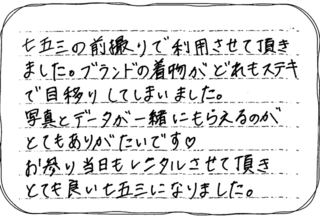 七五三の前撮りで利用させて頂き
ました。ブランドの着物がどれもステキ
で目移りしてしまいました。
写真とデータが一緒にもらえるのが
とてもありがたいです♡
お参り当日もレンタルさせて頂き
とても良い七五三になりました。